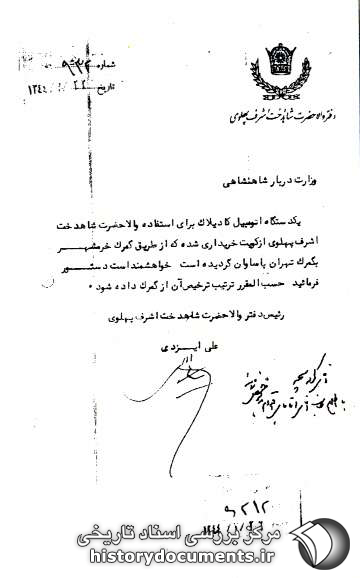 دفتر والاحضرت شاهدخت اشرف پهلوی
شماره ۹۳۲
تاریخ
وزارت دربار شاهنشاهی
یکدستگاه اتومبیل کادیلاک برای استفاده والاحضرت شاهدخت
اشرف پهلوی از کویت خریداری شده که از طریق گمرک خرمشهر
بگمرک تهران پاساوان گردیده است خواهشمند است دستور
فرمائید حسب المقرر ترتیب ترخیص آن از گمرک داده شود۰
رئیس دفتر والاحضرت شاهدخت اشرف پهلوی
علی ایزدی
مرکز بررسی اسناد تاریخی
historydocuments.ir